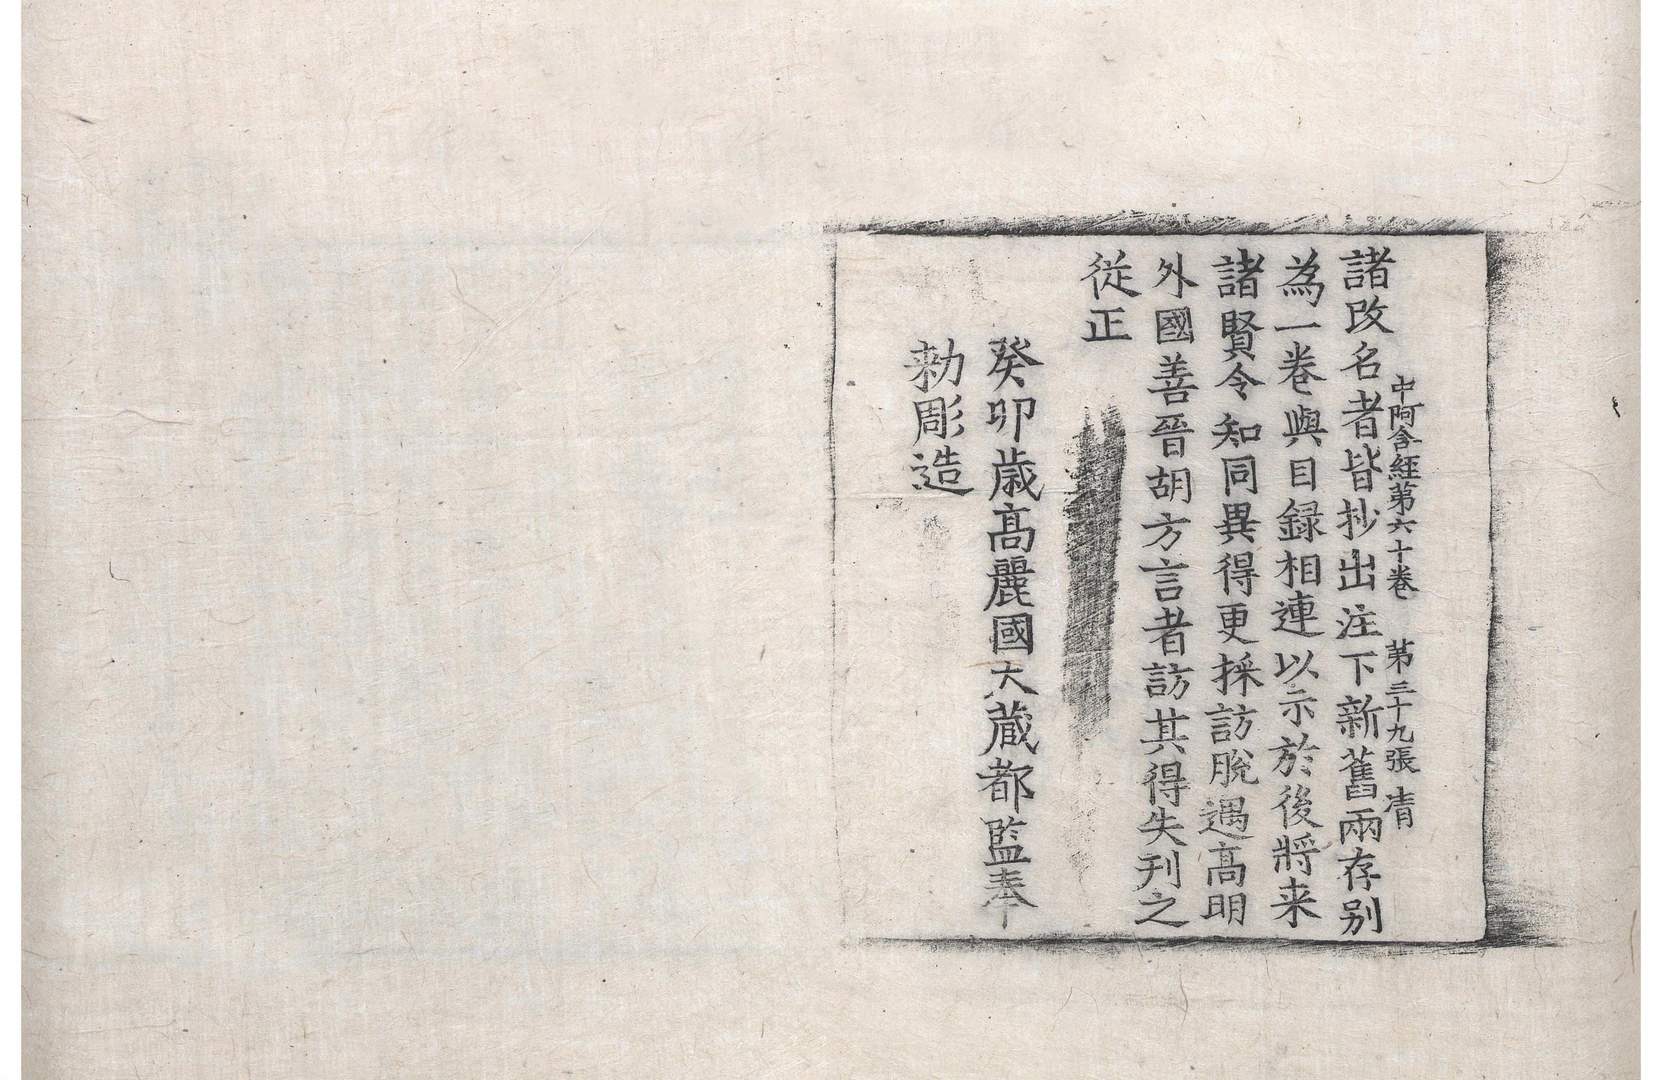 中阿含經第六十卷 第三十九張 凊
諸改名者皆抄出注下新舊兩存别
為一卷與目録相連以示於後將来
諸賢令知同異得更採訪脫遇高明
外國善晉胡方言者訪其得失刊之
從正
癸卯歲高麗國大藏都監奉
勑彫造